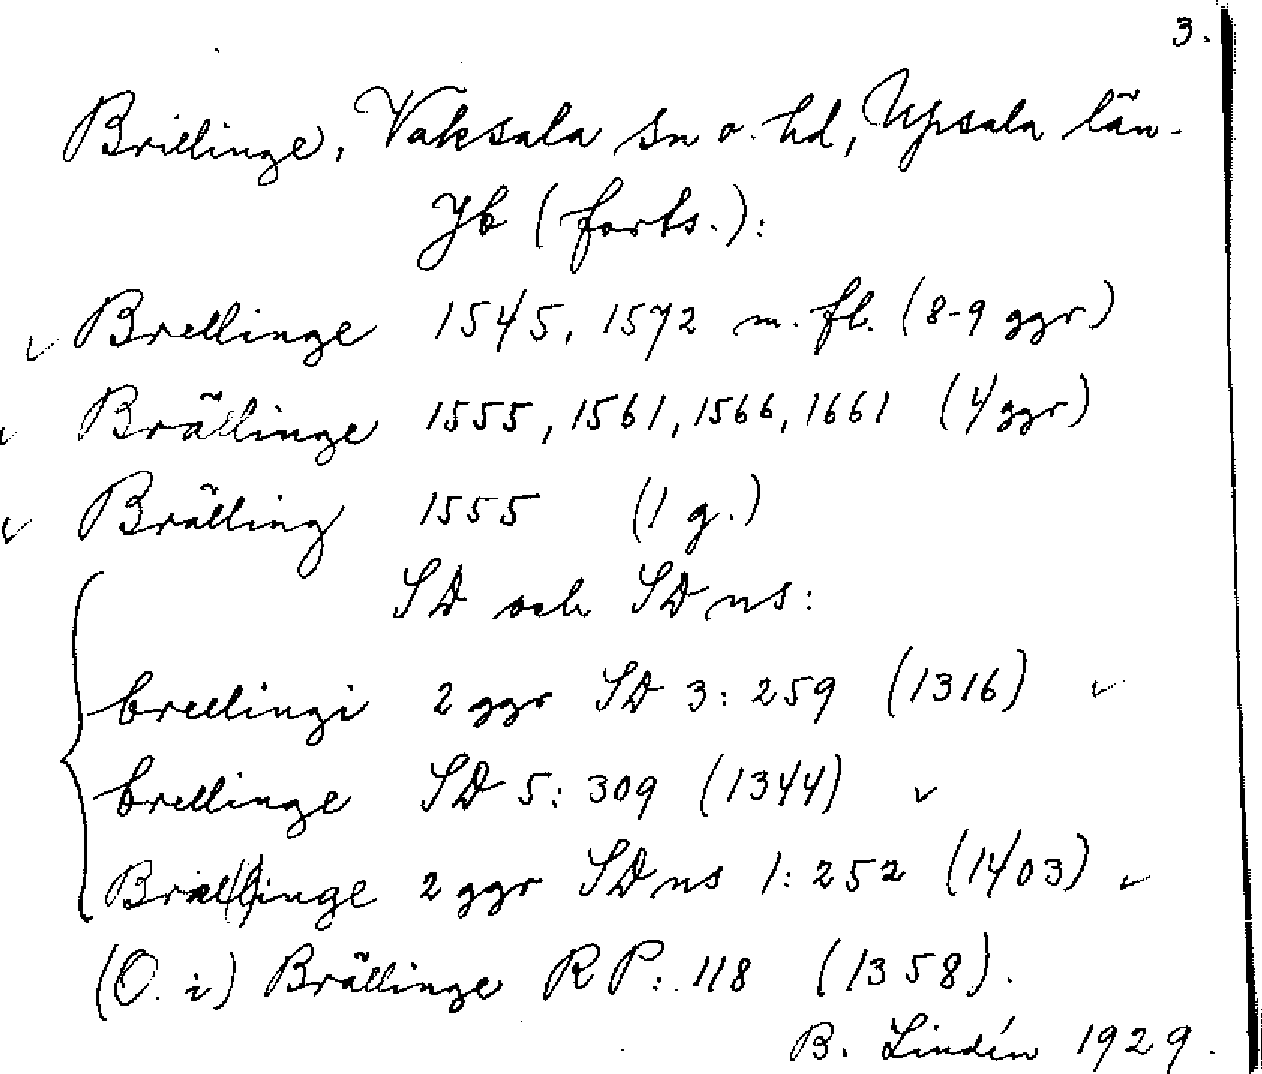 3.
Brillinge, Vaksala sn o. hd, Upsala län.
Jb (forts.):
Brellinge 1545, 1572 m. fl. (8-9 ggr)
Brällinge 1555, 1561, 1566, 1661 (4 ggr)
Brälling 1555 (1 g.)
SD och SD ns:
brellingi 2 ggr SD 3: 259 (1316)
brellinge SD 5: 309 (1344)
Bræl(l)inge 2 ggr SD ns 1: 252 (1403)
(O. i) Brällinge RP: 118 (1358).
B. Lindén 1929.